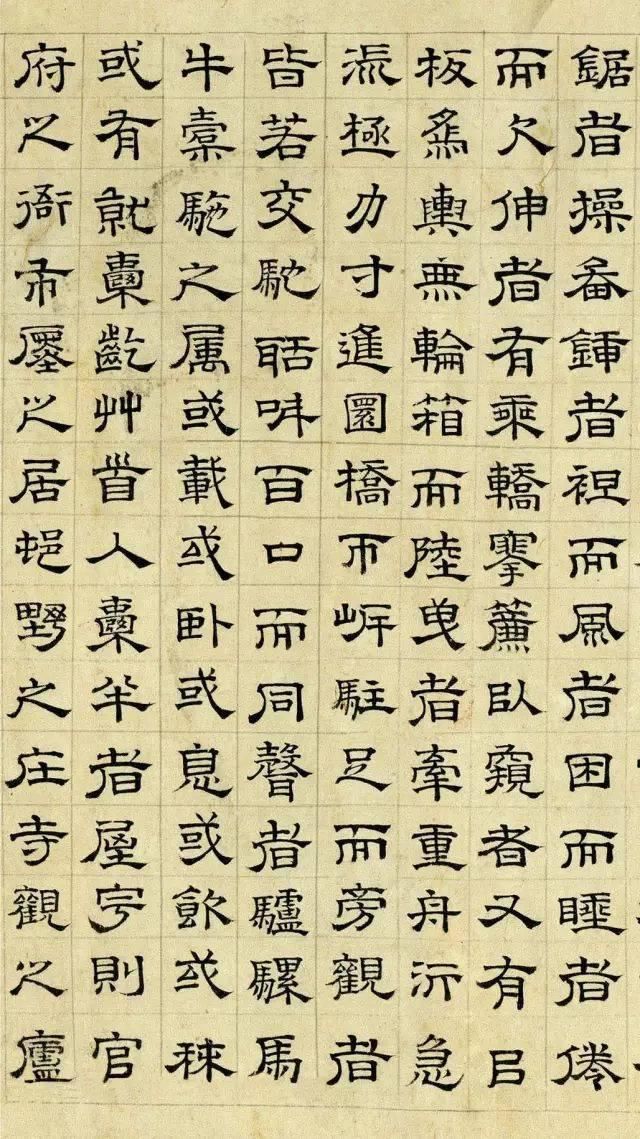 鋸者操畚鍤者袒而風者困而睡者倦
而欠伸者有乘轎搴簾以窺者又有以
板為輿無輪箱而陸曳者牽重舟泝急
流極力寸進圜橋帀岸駐足而旁觀者
皆若交駝聒呌百口而同聲者驢騾馬
牛橐駞之属或載或卧或息或飲或秣
或有就囊齕艸首入囊半者屋宇則官
府之衙市廛之居邨野之庄寺觀之廬